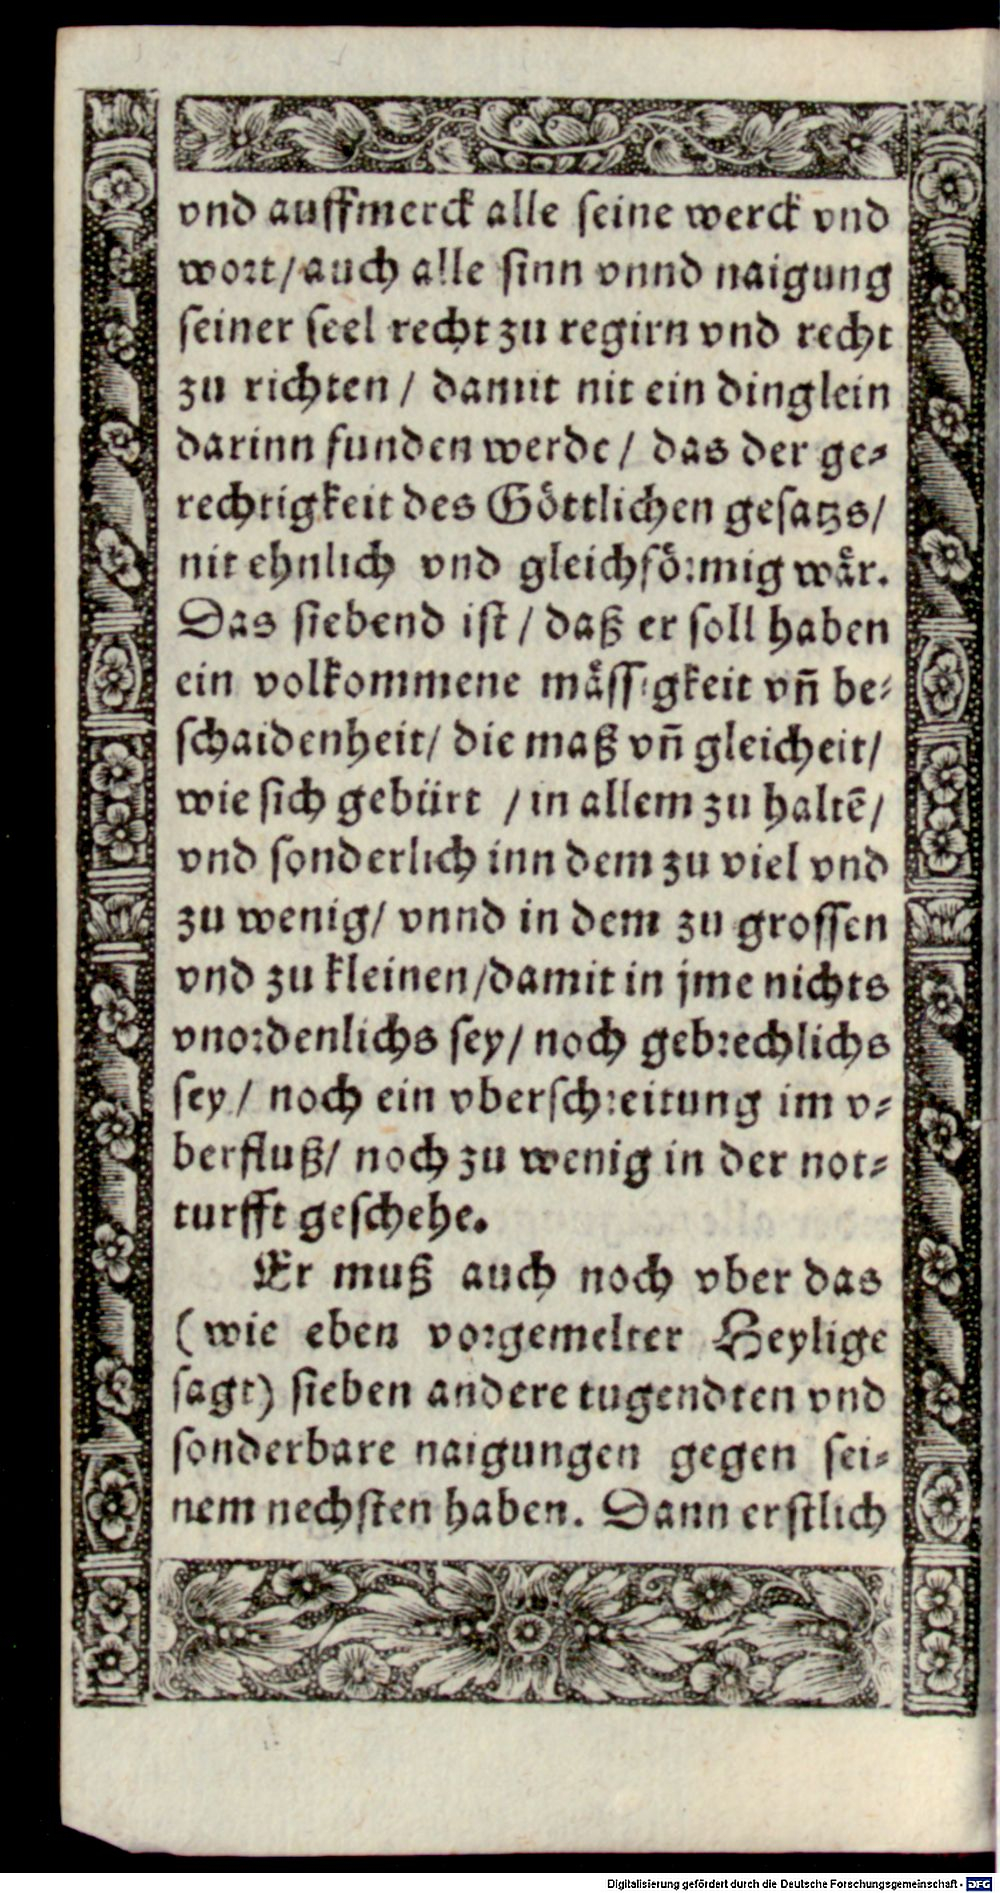 vnd auffmerck alle ſeine werck vnd
wort/auch alle ſinn vnnd naigung
ſeiner ſeel recht zu regirn vnd recht
zu richten / damit nit ein dinglein
darinn funden werde / das der ge-
rechtigkeit des Göttlichen geſatzs/
nit ehnlich vnd gleichförmig wär.
Das ſiebend iſt / daß er ſoll haben
ein volkommene mäſſigkeit vñ be-
ſchaidenheit/ die maß vñ gleicheit/
wie ſich gebürt / in allem zu haltē/
vnd ſonderlich inn dem zu viel vnd
zu wenig/ vnnd in dem zu groſſen
vnd zu kleinen/damit in jme nichts
vnordenlichs ſey/ noch gebrechlichs
ſey / noch ein vberſchreitung im v-
berfluß/ noch zu wenig in der not-
turfft geſchehe.
Er muß auch noch vber das
(wie eben vorgemelter Heylige
ſagt) ſieben andere tugendten vnd
ſonderbare naigungen gegen ſei-
nem nechſten haben. Dann erſtlich
Digitalisierung gefördert durch die Deutsche Forschungsgemeinschaft - DFG